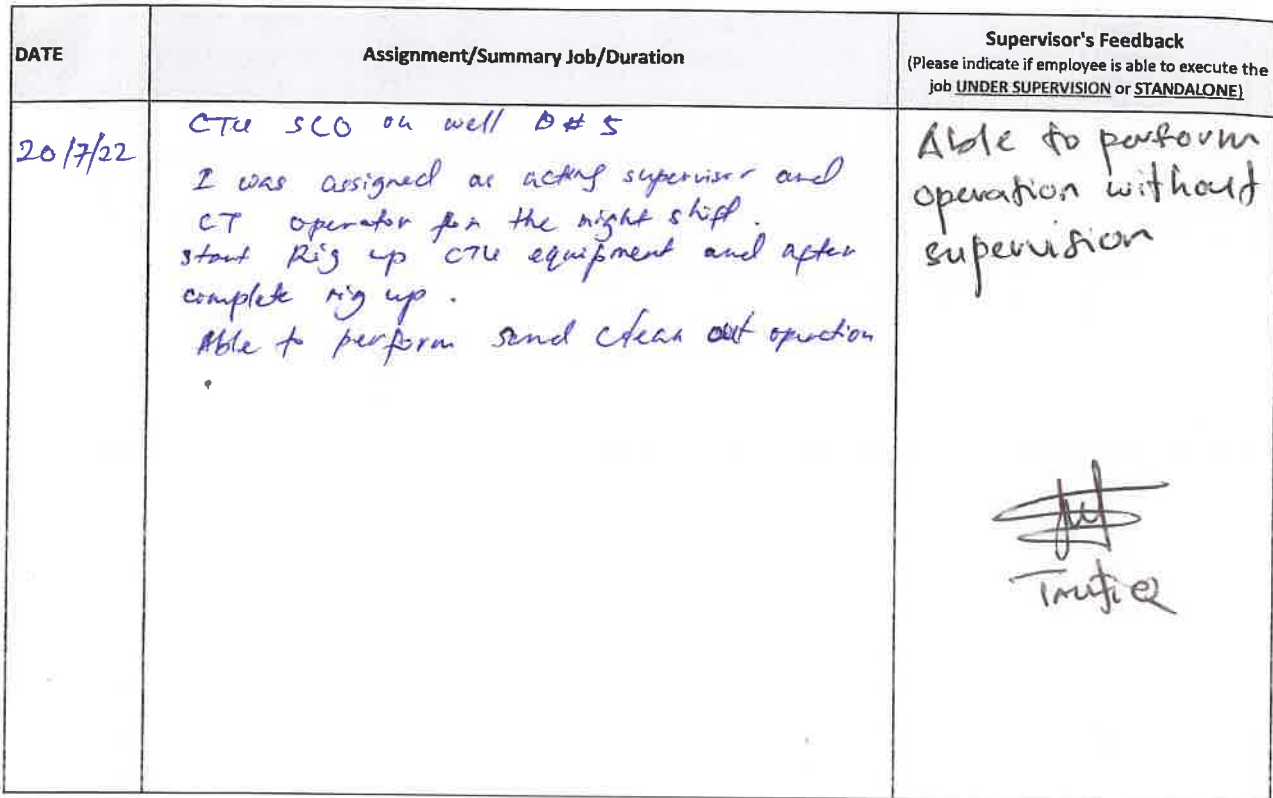 DATE
Assignment/Summary Job/Duration
Supervisor's Feedback
(Please indicate if employee is able to execute the
job UNDER SUPERVISION or STANDALONE)
20/7/22
CTU SCO on well D# 5
I was assigned as acting supervisor and
CT operator for the night shift.
start Rig up CTU equipment and after
complete rig up.
Able to perform sand clean out operation
.
Able to perform
operation without
supervision